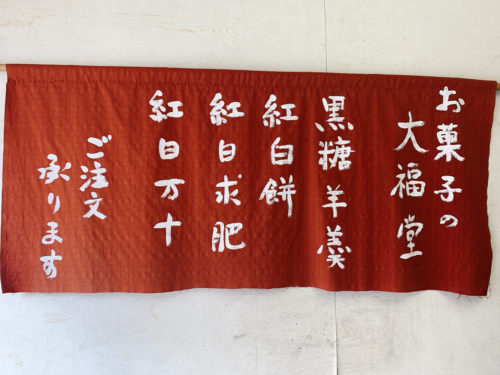 お菓子の
大福堂
黒糖羊羹
紅白餅
紅日求肥
紅日万十
ご注文
承ります